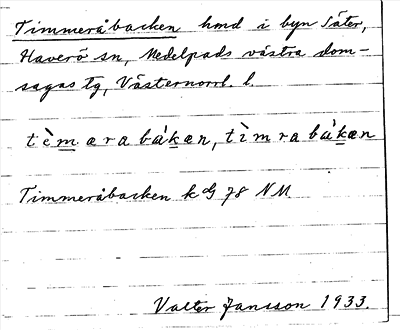 Timmeråbacken hmd i byn Säter,
Haverö sn, Medelpads västra dom-
sagas tg, Västernorrl. l.
tèmarabákæn, tìmrabákæn
Timmeråbacken k G 78 NM
Valter Jansson 1933.